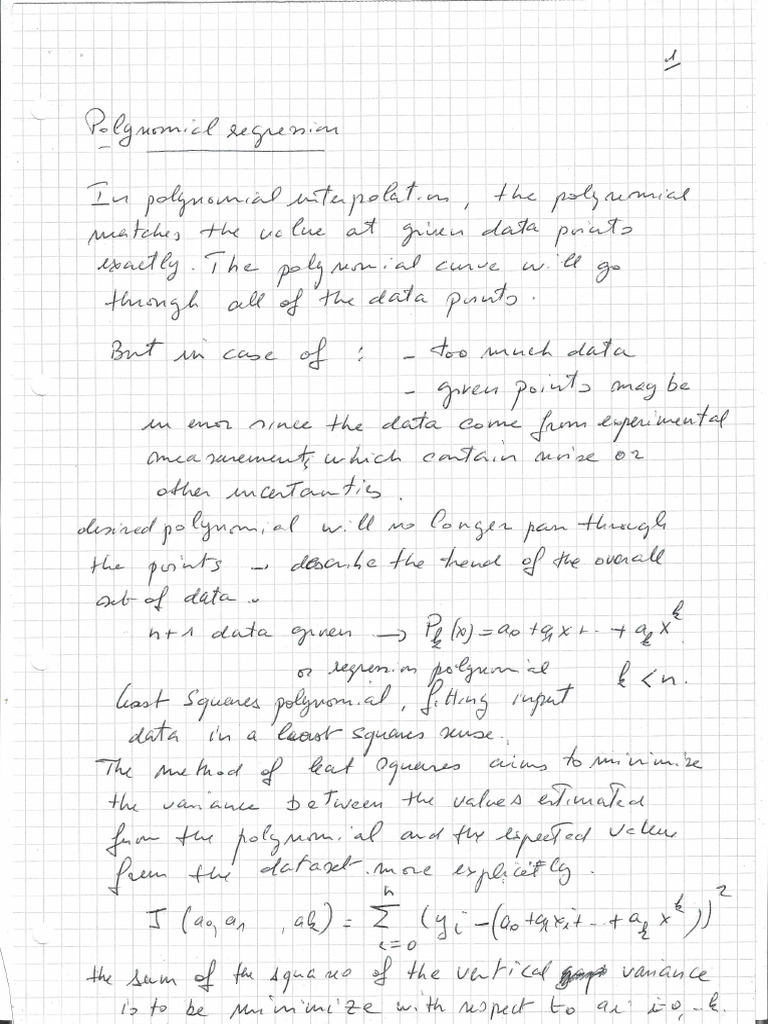 1
Polynomial regression
In polynomial interpolation, the polynomial
matches the value at given data points
exactly. The polynomial curve will go
through all of the data points.
But in case of : - too much data
- given points may be
in error since the data come from experimental
measurements, which contain noise or
other incertanties.
desired polynomial will no longer pass through
the points → describe the trend of the overall
set of data.
n+1 data given → P_k(x) = a_0 + a_1 x + .. + a_k x^k
or regression polynomial k < n.
least squares polynomial, fitting input
data in a least squares sense.
The method of least squares aims to minimize
the variance between the values estimated
from the polynomial and the expected values
from the dataset. more explicitly.
J (a_0, a_1 , a_k) = Σ_{i=0}^{n} (y_i - (a_0 + a_1 x_i + .. + a_k x^k))^2
the sum of the squares of the vertical variance
is to be minimize with respect to a_i i=0, .. k.